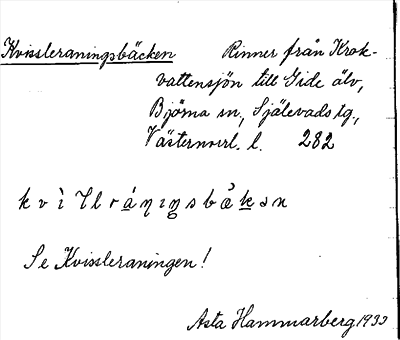 Kvissleraningsbäcken Rinner från Krok-
vattensjön till Gide älv,
Björna sn, Själevads tg.,
Västernorrl. l. 282
Se Kvissleraningen!
Asta Hammarberg 1933